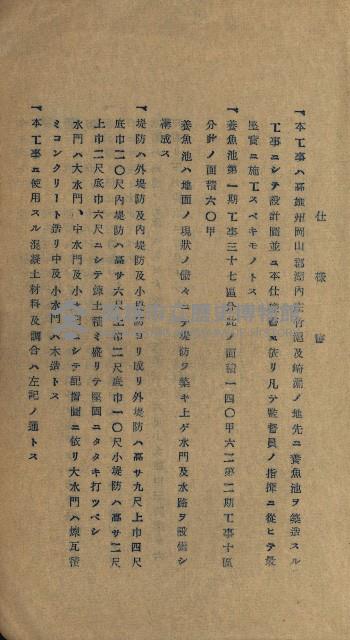 仕樣書
一、本工事ハ高雄州岡山郡湖內庄竹滬及崎漏ノ地先ニ養魚池ヲ築造スル
工事ニシテ設計圖並ニ本仕樣書ニ依リ凡テ監督員ノ指揮ニ從ヒテ最
堅實ニ施工スベキモノトス
一、養魚池第一期工事三十七區分此ノ面積一四〇甲六二第二期工事十區
分此ノ面積六〇甲
養魚池ハ地面ノ現狀ノ儘々ニテ堤防ヲ築キ上ゲ水門及水路ヲ設備シ
構成ス
一、堤防ハ外堤防及內堤防及小堤防ヨリ成リ外堤防ハ高サ九尺上巾四尺
底巾二〇尺內堤防ハ高サ六尺上巾二尺底巾一〇尺小堤防ハ高サ二尺
上巾二尺底巾六尺ニシテ練土積ミ盛リテ堅固ニタタキ打ツベシ
水門ハ大水門、中水門及小水門ニシテ配置圖ニ依リ大水門ハ煉瓦積
ミコンクリート造リ中及小水門ハ木造トス
一、本工事ニ使用スル混凝土材料及調合ハ左記ノ通トス
高雄市立歷史博物館